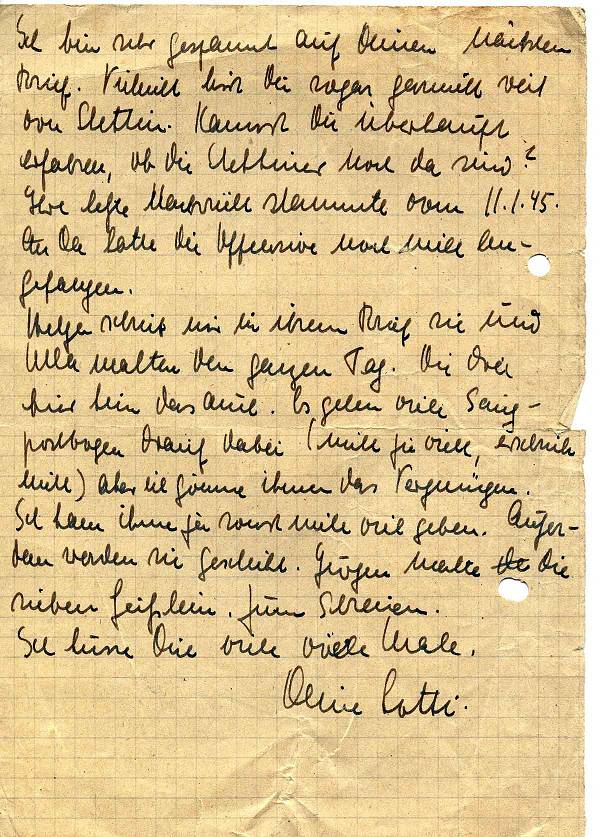 Ich bin sehr gespannt auf Deinen nächsten
Brief. Vielleicht bist Du sogar garnicht weit
von Stettin. Kannst Du überhaupt
erfahren, ob die Stettiner noch da sind?
Ihre letzte Nachricht stammte vom 11.1.45.
An Da hatte die Offensive noch nicht an-
gefangen.
Helga schrieb mir in ihrem Brief sie und
Ulla malten den ganzen Tag. Die drei
hier tun das auch. Es gehen viele
bogen drauf dabei (nicht zu viele, erschrick
nicht) aber ich gönne ihnen das Vergnügen.
Ich kann ihnen ja sonst nicht viel geben. Außer-
dem werden sie geschickt. Jürgen malte die
sieben Geißlein. Zum Schreien.
Ich küsse Dich viele viele Male.
Deine Lotti.